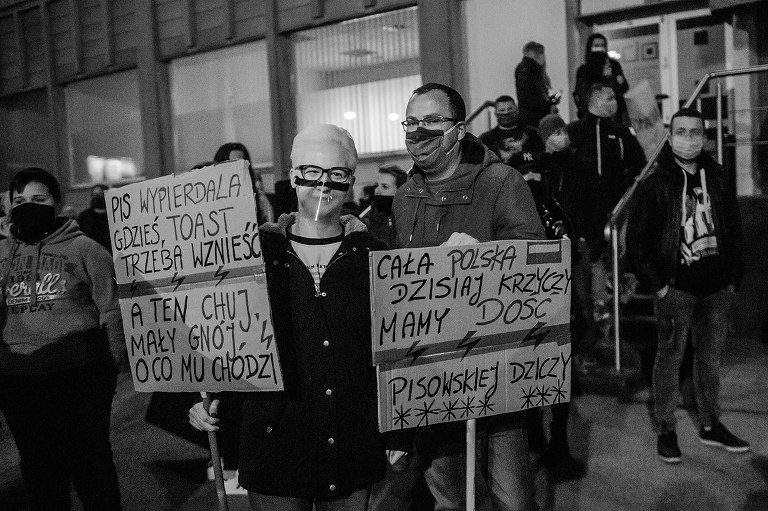 PIS WYPIERDALA
GDZIEŚ, TOAST
TRZEBA WZNIEŚĆ
A TEN CHUJ,
MAŁY GNÓJ,
O CO MU CHODZI
CAŁA POLSKA
DZISIAJ KRZYCZY
MAMY DOŚĆ
PISOWSKIEJ DZICZY